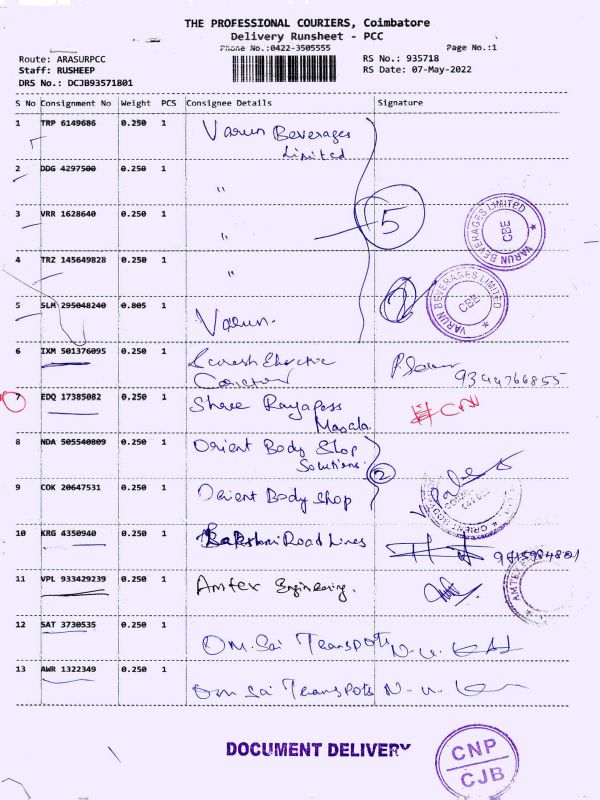 THE PROFESSIONAL COURIERS, Coimbatore
Delivery Runsheet - PCC
Phone No.:0422-3505555
Page No.:1
Route: ARASURPCC
RS No.: 935718
Staff: RUSHEEP
RS Date: 07-May-2022
DRS No.: DCJB93571801
S No Consignment No Weight PCS Consignee Details Signature
1 TRP 6149686 0.250 1 Varun Beverages
Limited
2 DDG 4297500 0.250 1 "
3 VRR 1628640 0.250 1 "
5
VARUN BEVERAGES LIMITED
CBE
4 TRZ 145649828 0.250 1 "
2
VARUN BEVERAGES LIMITED
CBE
5 SLM 295048240 0.805 1 Varun.
6 IXM 501376095 0.250 1
9344766855
7 EDQ 17385082 0.250 1 Shree
Masala
8 NDA 505540809 0.250 1 Orient Body Shop
Solutions.
2
9 COK 20647531 0.250 1 Orient Body Shop
10 KRG 4350940 0.250 1 Road Lines
11 VPL 933429239 0.250 1 Amtex Engineering.
AMTEX
12 SAT 3730535 0.250 1 Om. Sai Transpots
13 AWR 1322349 0.250 1 Om Sai Transpots
DOCUMENT DELIVERY
CNP
CJB